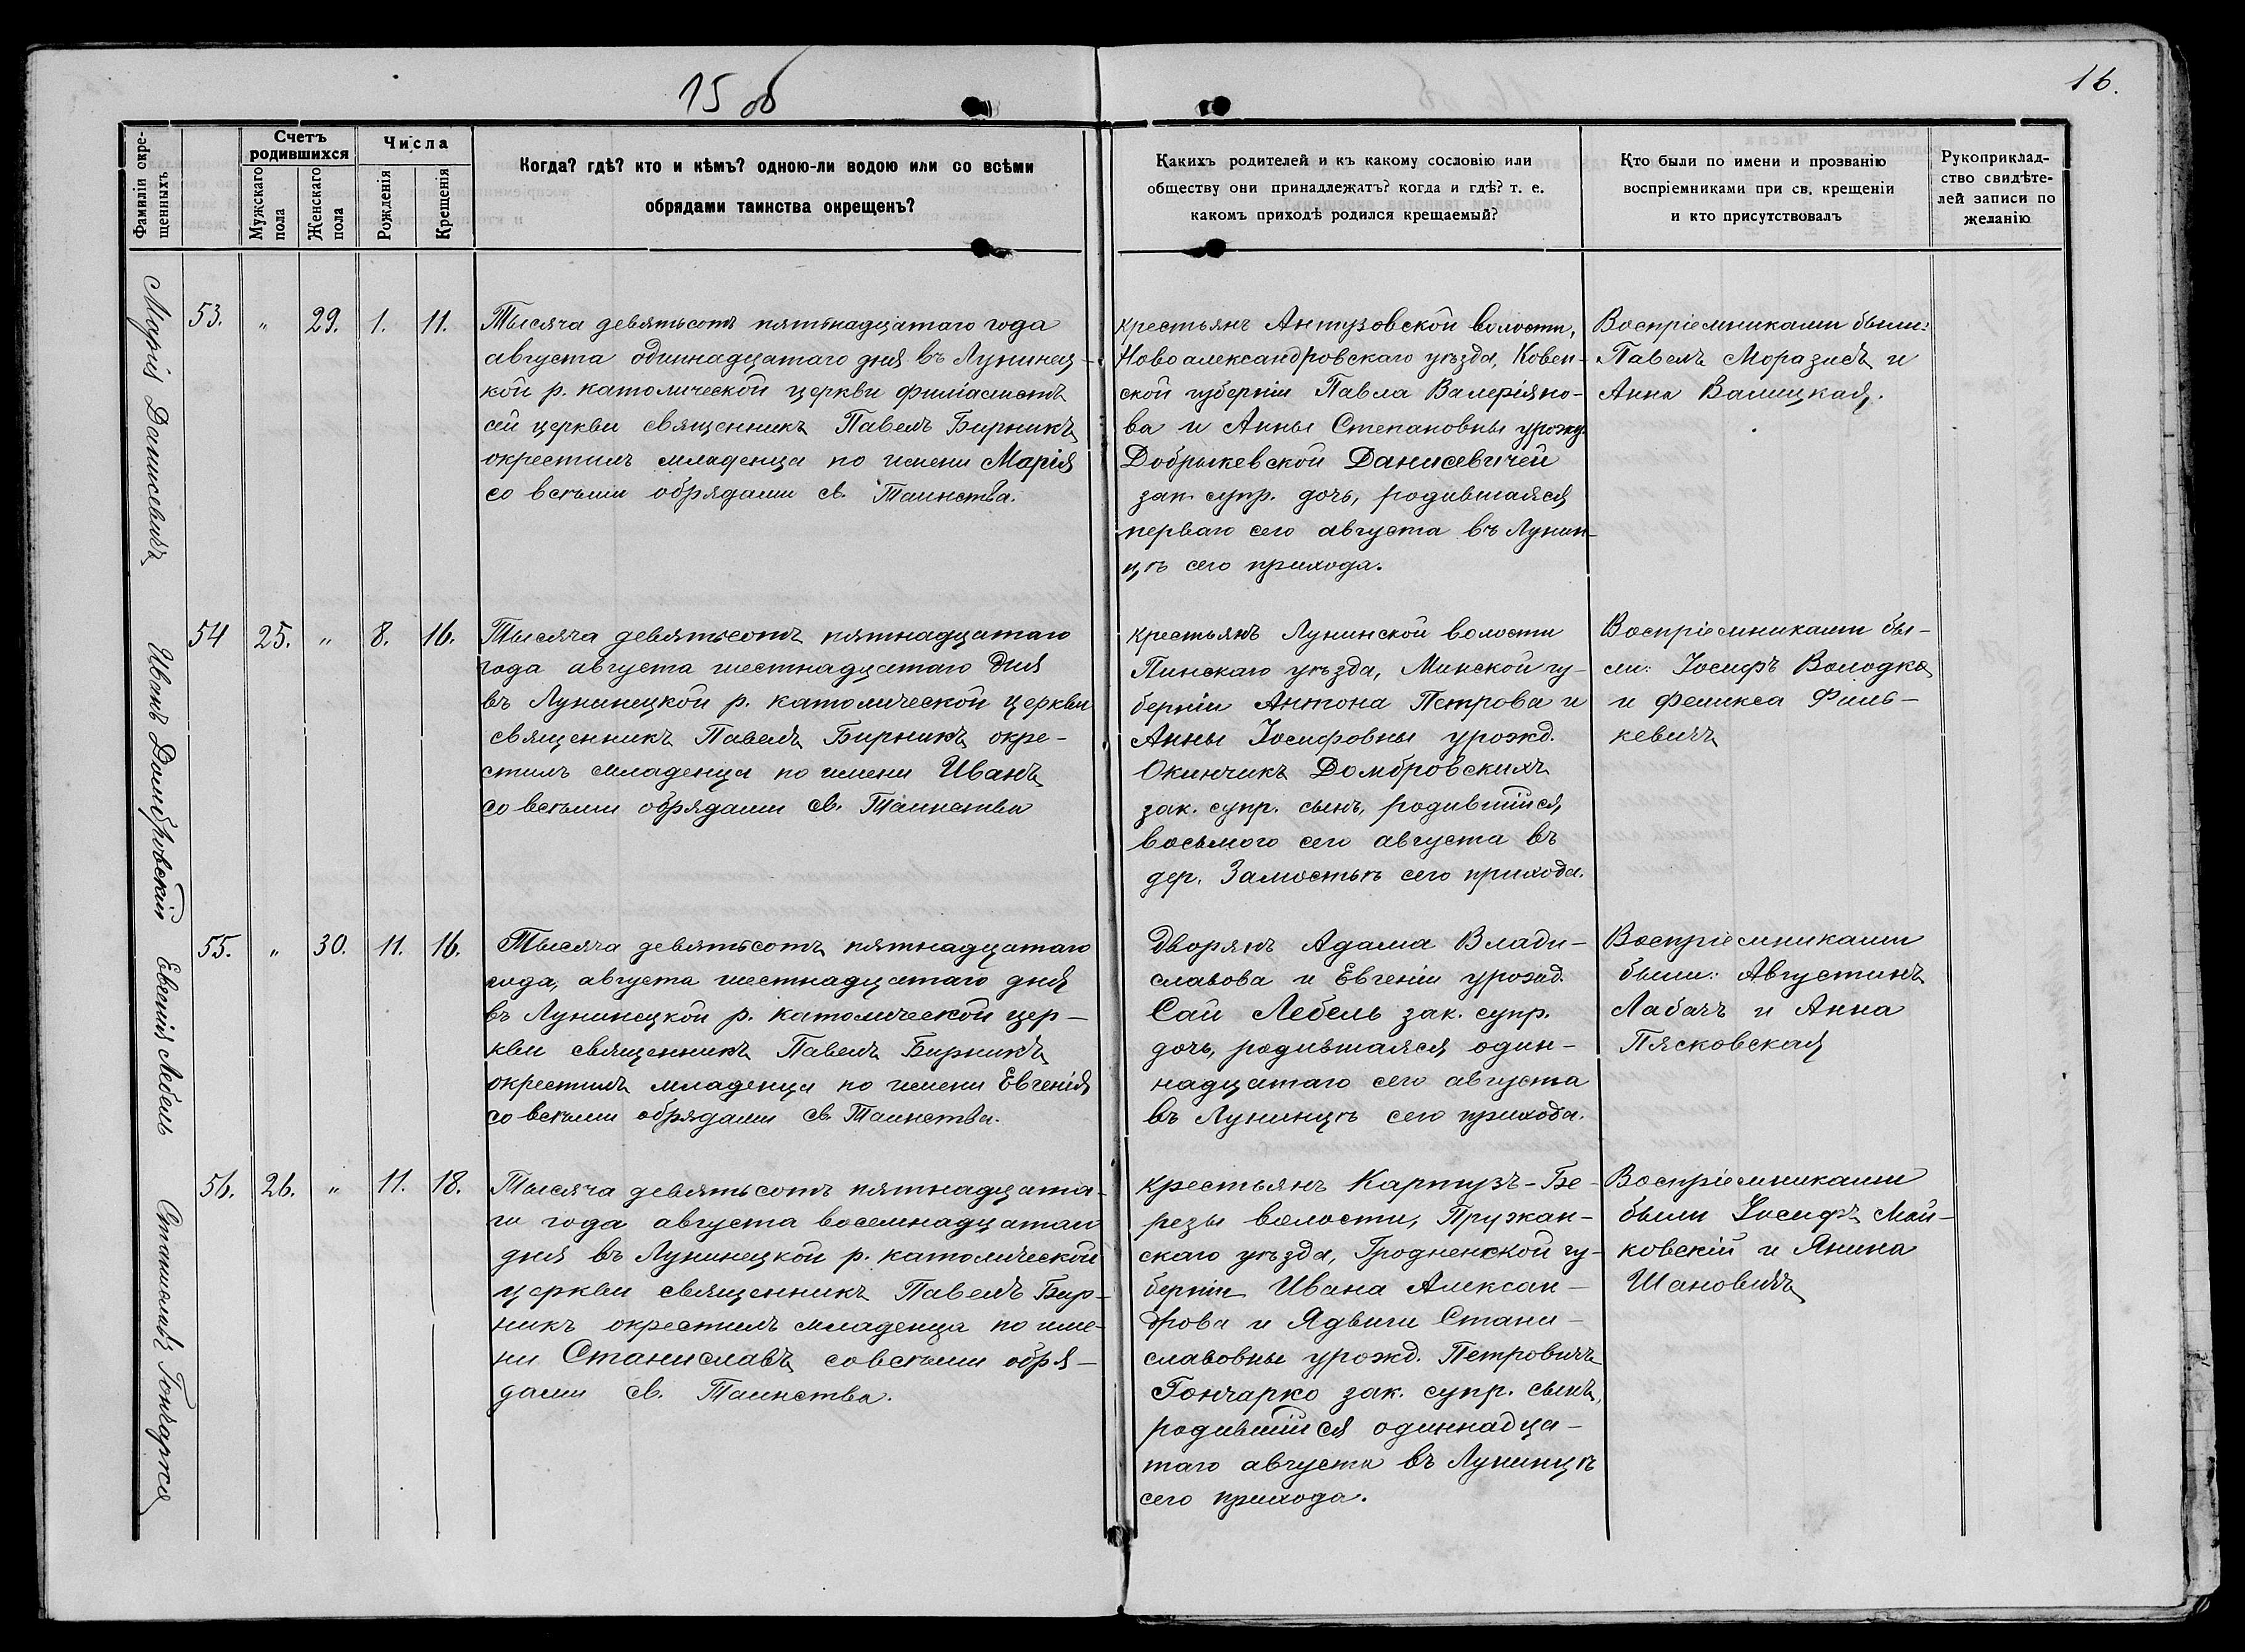 15 об
16.
Фамиліи окре-
щенныхъ
Счетъ
родившихся
Мужскаго
пола
Женскаго
пола
Числа
Рожденія
Крещенія
Когда? гдѣ? кто и кѣмъ? одною-ли водою или со всѣми
обрядами таинства окрещенъ?
Какихъ родителей и къ какому сословію или
обществу они принадлежатъ? когда и гдѣ? т. е.
какомъ приходѣ родился крещаемый?
Кто были по имени и прозванію
воспріемниками при св. крещеніи
и кто присутствовалъ
Рукоприклад-
ство свидѣте-
лей записи по
желанію
Марія Данисевичъ
53. " 29. 1. 11.
Тысяча девятьсотъ пятнадцатаго года
августа одиннадцатаго дня въ Лунинец-
кой р. католической церкви филіалистъ
сей церкви священникъ Павелъ Бирникъ
окрестилъ младенца по имени Марія
со всѣми обрядами св. Таинства.
крестьянъ Антузовской волости,
Новоалександровскаго уѣзда, Ковен-
ской губерніи Павла Валеріяно-
ва и Анны Степановны урожд.
Добрыкевской Данисевичей
зак. супр. дочь, родившаяся
перваго сего августа въ Лунин-
цѣ сего прихода.
Воспріемниками были:
Павелъ Моразисъ и
Анна Валицкая.
Иванъ Домбровскій
54 25. " 8. 16.
Тысяча девятьсотъ пятнадцатаго
года августа шестнадцатаго дня
въ Лунинецкой р. католической церкви
священникъ Павелъ Бирникъ окре-
стилъ младенца по имени Иванъ
со всѣми обрядами св. Таинства
крестьянъ Лунинской волости
Пинскаго уѣзда, Минской гу-
берніи Антона Петрова и
Анны Іосифовны урожд.
Окинчикъ Домбровскихъ
зак. супр. сынъ, родившійся
восьмого сего августа въ
дер. Замостьѣ сего прихода.
Воспріемниками бы-
ли: Іосифъ Володко
и Феликса Филь-
кевичъ
Евгенія Лебель
55. " 30. 11. 16.
Тысяча девятьсотъ пятнадцатаго
года, августа шестнадцатаго дня
въ Лунинецкой р. католической цер-
кви священникъ Павелъ Бирникъ
окрестилъ младенца по имени Евгенія
со всѣми обрядами св. Таинства.
Дворянъ Адама Влади-
славова и Евгеніи урожд.
Сай Лебель зак. супр.
дочь, родившаяся один-
надцатаго сего августа
въ Лунинцѣ сего прихода.
Воспріемниками
были: Августинъ
Лабачъ и Анна
Пясковская
Станиславъ Гончарко
56. 26. " 11. 18.
Тысяча девятьсотъ пятнадцата-
го года августа восемнадцатаго
дня въ Лунинецкой р. католической
церкви священникъ Павелъ Бир-
никъ окрестилъ младенца по име-
ни Станиславъ со всѣми обря-
дами св. Таинства.
крестьянъ Картузъ-Бе-
резы волости, Пружан-
скаго уѣзда, Гродненской гу-
берніи Ивана Алексан-
дрова и Ядвиги Стани-
славовны урожд. Петровичъ
Гончарко зак. супр. сынъ,
родившійся одиннадца-
таго августа въ Лунинцѣ
сего прихода.
Воспріемниками
были Іосифъ Май-
ковскій и Янина
Шановичъ